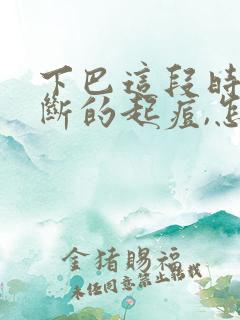 下巴這段時
斷的起痘,怎
金猪賜福
未经同意禁止搬我